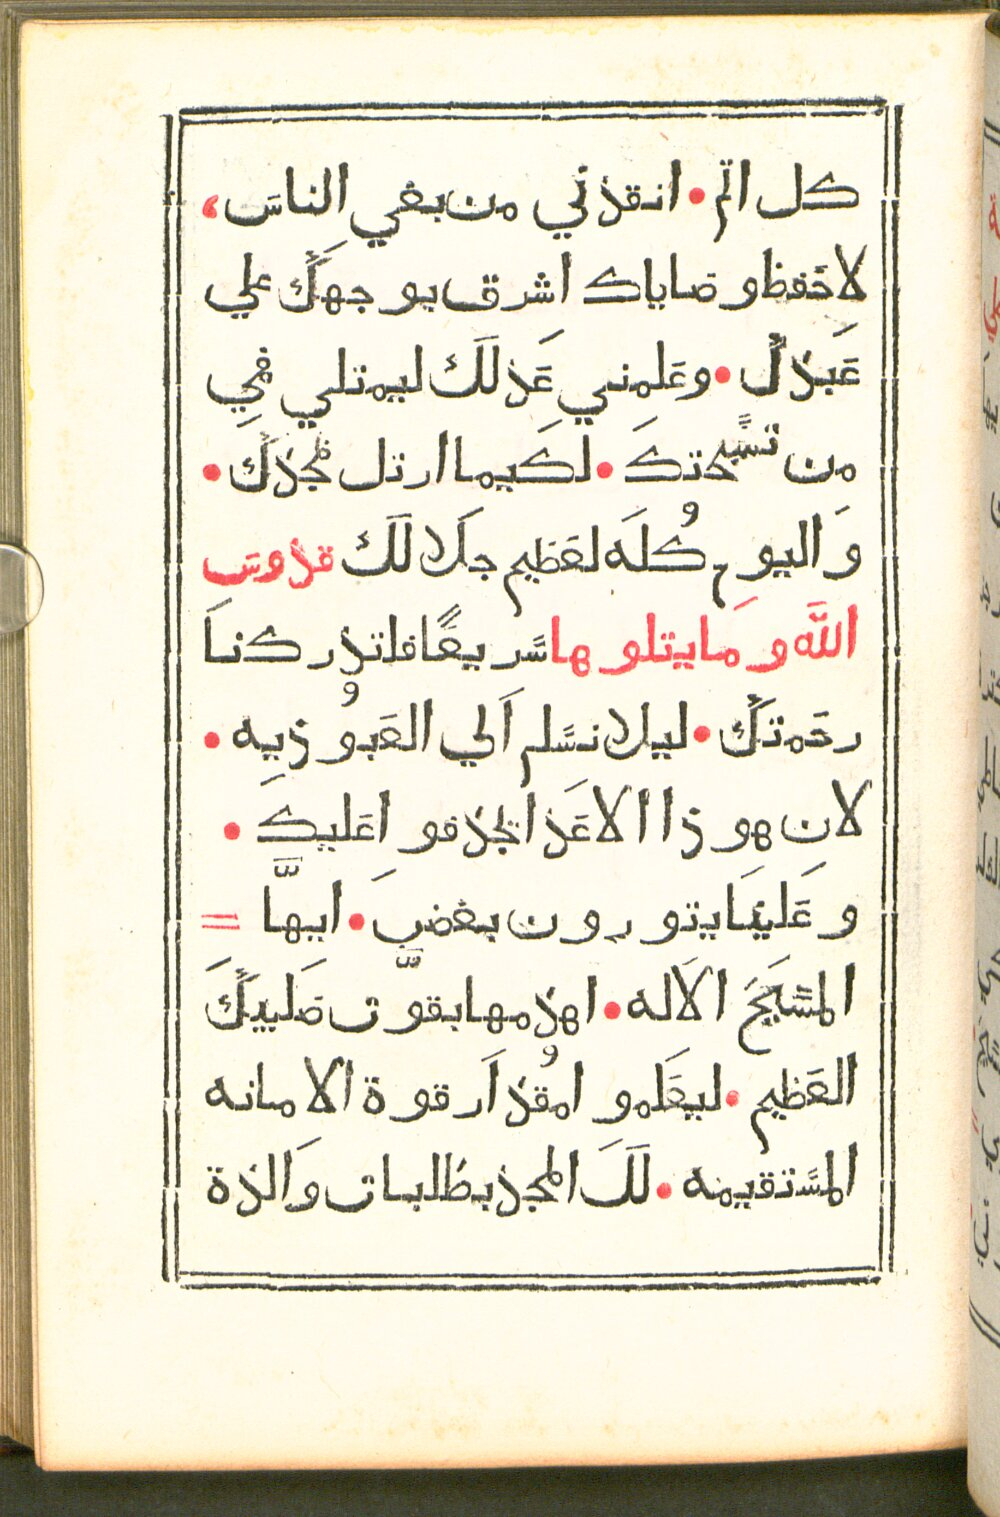 كل اثم • انقذني من بغي الناس،
لاحفظ وصاياك اشرق بوجهك علي
عبدك • وعلمني عدلك ليمتلي فمي
من تسبيحتك • لكيما ارتل بمجدك •
واليوم كله لعظيم جلالك قدوس
الله وما يتلوها سريعًا فلتدركنا
رحمتك • ليلا نسلم الي العبوديه •
لان هوذا الاعدا يجدفوا عليك •
وعلينا يتورون ببغض • ايها =
المسيح الاله • اهدمها بقوت صليبك
العظيم • ليعلموا مقدار قوة الامانه
المستقيمه • لك المجد بطلبات والدة